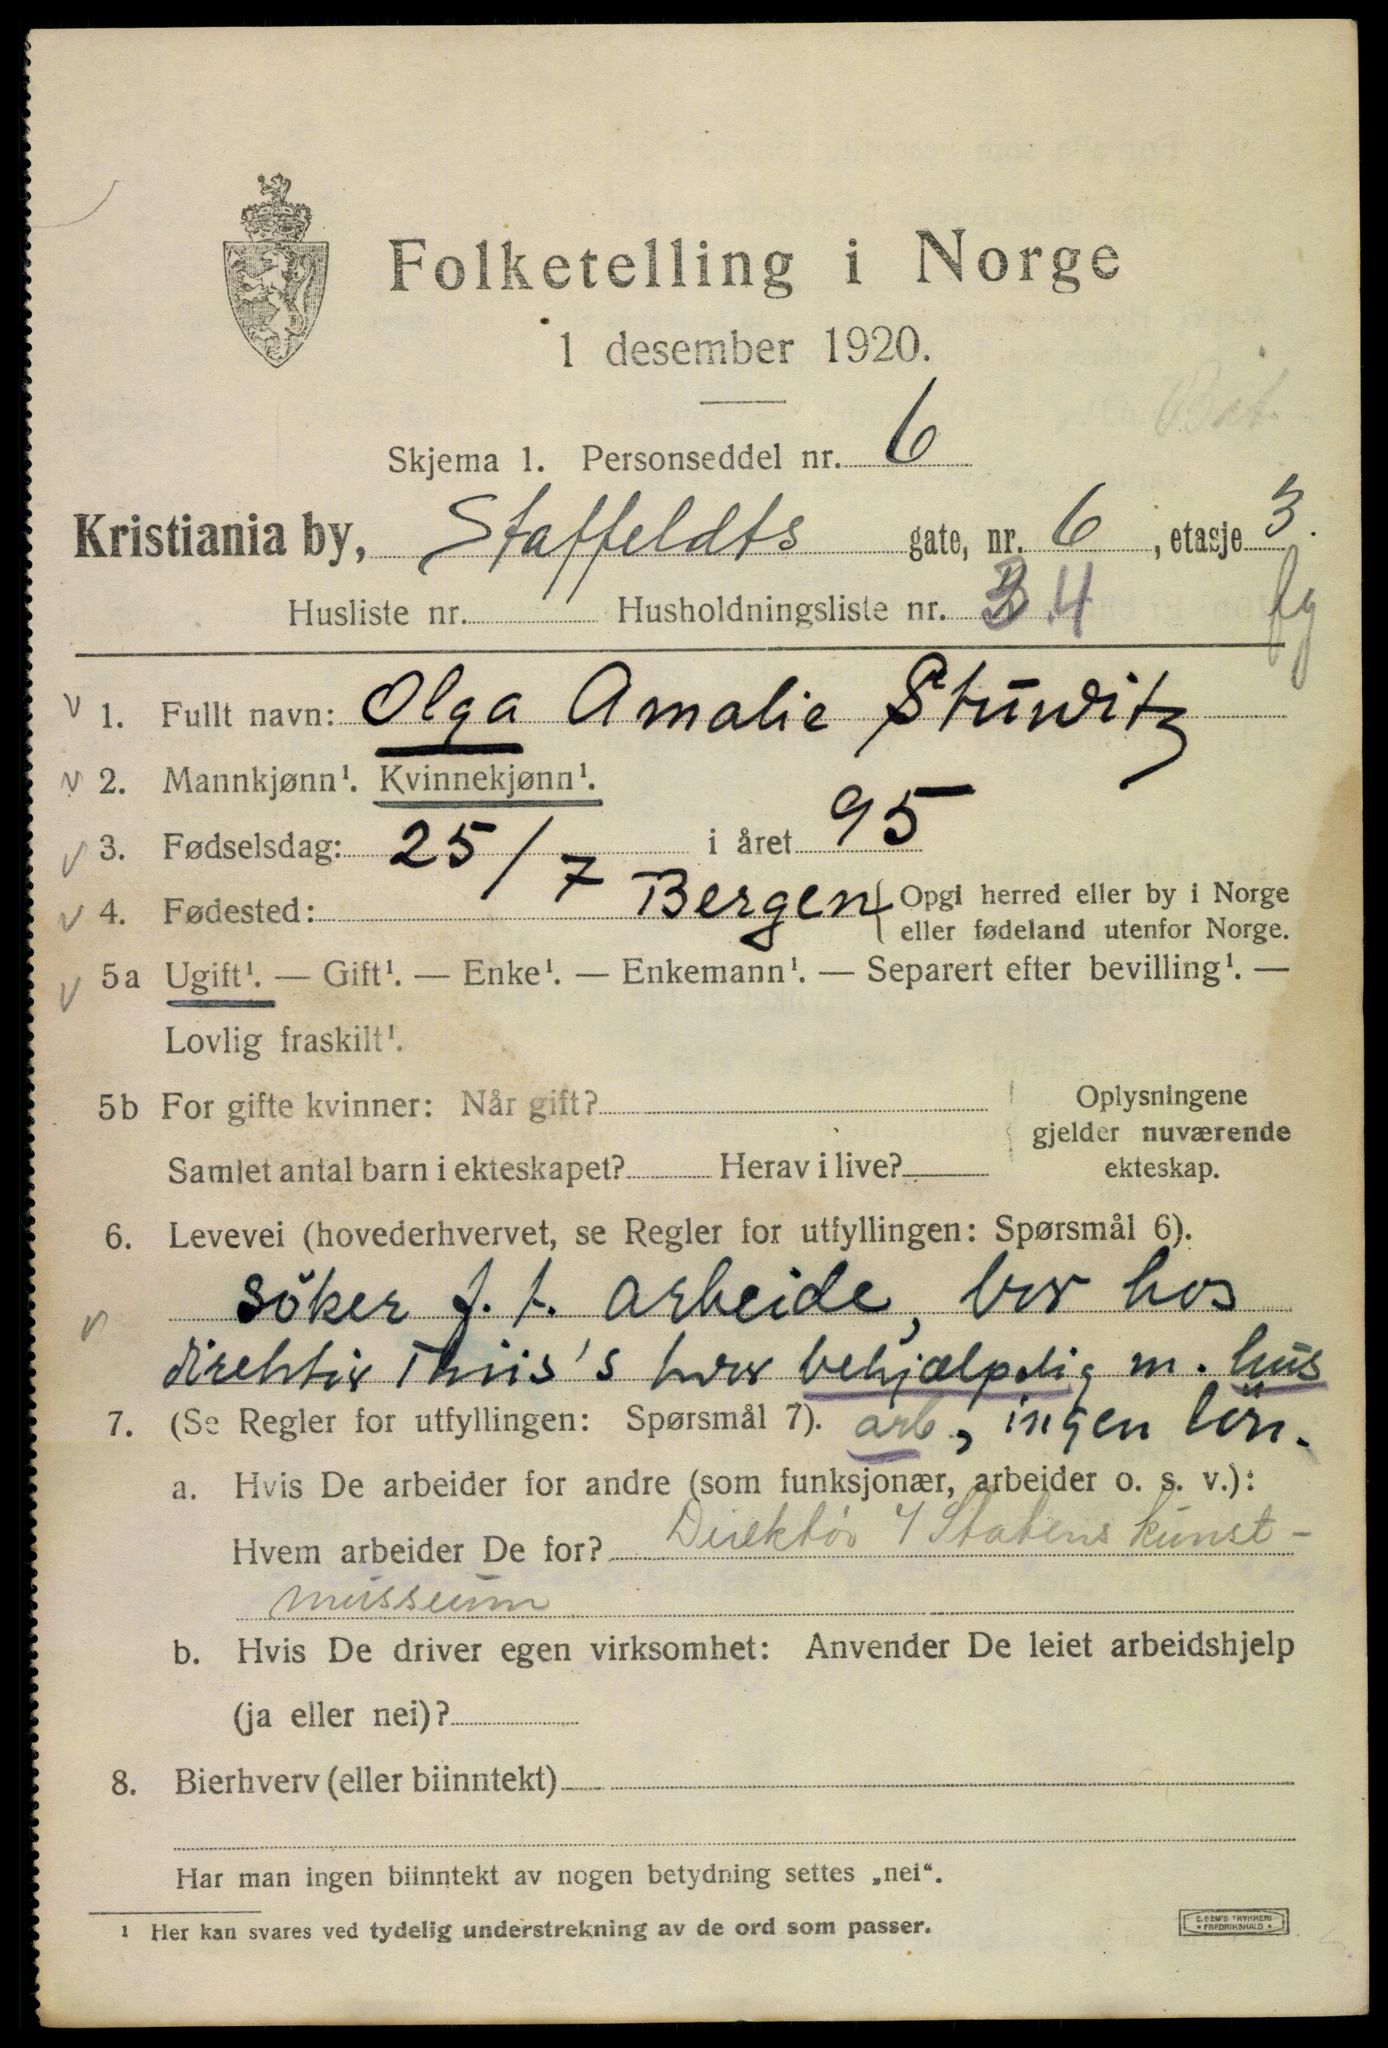 Folketelling i Norge
1 desember 1920.
Skjema 1. Personseddel nr. 6
Kristiania by, Staffeldts gate, nr. 6, etasje 3.
Husliste nr. Husholdningsliste nr. 4
1. Fullt navn: Olga Amalie Stuwitz
2. Mannkjønn¹. Kvinnekjønn¹.
3. Fødselsdag: 25/7 i året 95
4. Fødested: Bergen { Opgi herred eller by i Norge
eller fødeland utenfor Norge.
5a Ugift¹. — Gift¹. — Enke¹. — Enkemann¹. — Separert efter bevilling¹. —
Lovlig fraskilt¹.
5b For gifte kvinner: Når gift? Oplysningene
gjelder nuværende
Samlet antal barn i ekteskapet? Herav i live? ekteskap.
6. Levevei (hovederhvervet, se Regler for utfyllingen: Spørsmål 6).
söker f. t. arbeide, bor hos
direktör Thiis's hvor behjælpelig m. hus
7. (Se Regler for utfyllingen: Spørsmål 7). arb, ingen lön.
a. Hvis De arbeider for andre (som funksjonær, arbeider o. s. v.):
Hvem arbeider De for? Direktør Statens kunst-
musseum
b. Hvis De driver egen virksomhet: Anvender De leiet arbeidshjelp
(ja eller nei)?
8. Bierhverv (eller biinntekt)
Har man ingen biinntekt av nogen betydning settes „nei“.
¹ Her kan svares ved tydelig understrekning av de ord som passer.
E. SEM'S TRYKKERI
• FREDRIKSHALD •